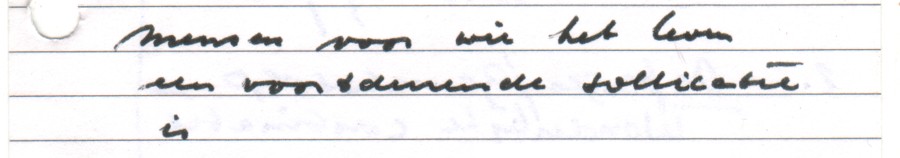 mensen voor wie het leven
een voortdurende sollicitatie
is